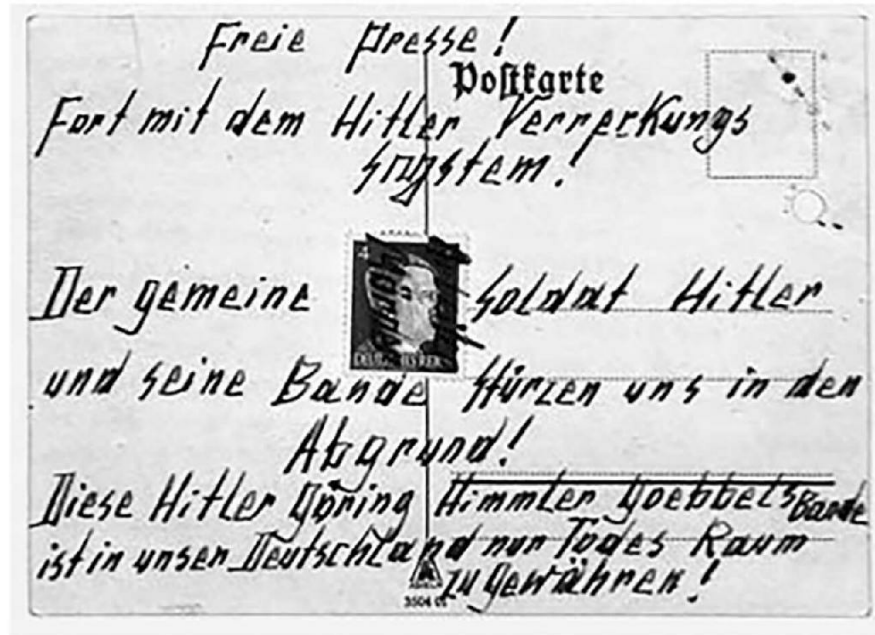 Freie Presse!
Postkarte
Fort mit dem Hitler Verrerkungs
system!
Der gemeine Soldat Hitler
4
DEUTSCHES REICH
und seine Bande stürzen uns in den
Abgrund!
Diese Hitler Göring Himmler Goebbels Bande
ist in unser Deutschland nur Todes Raum
zu gewähren!